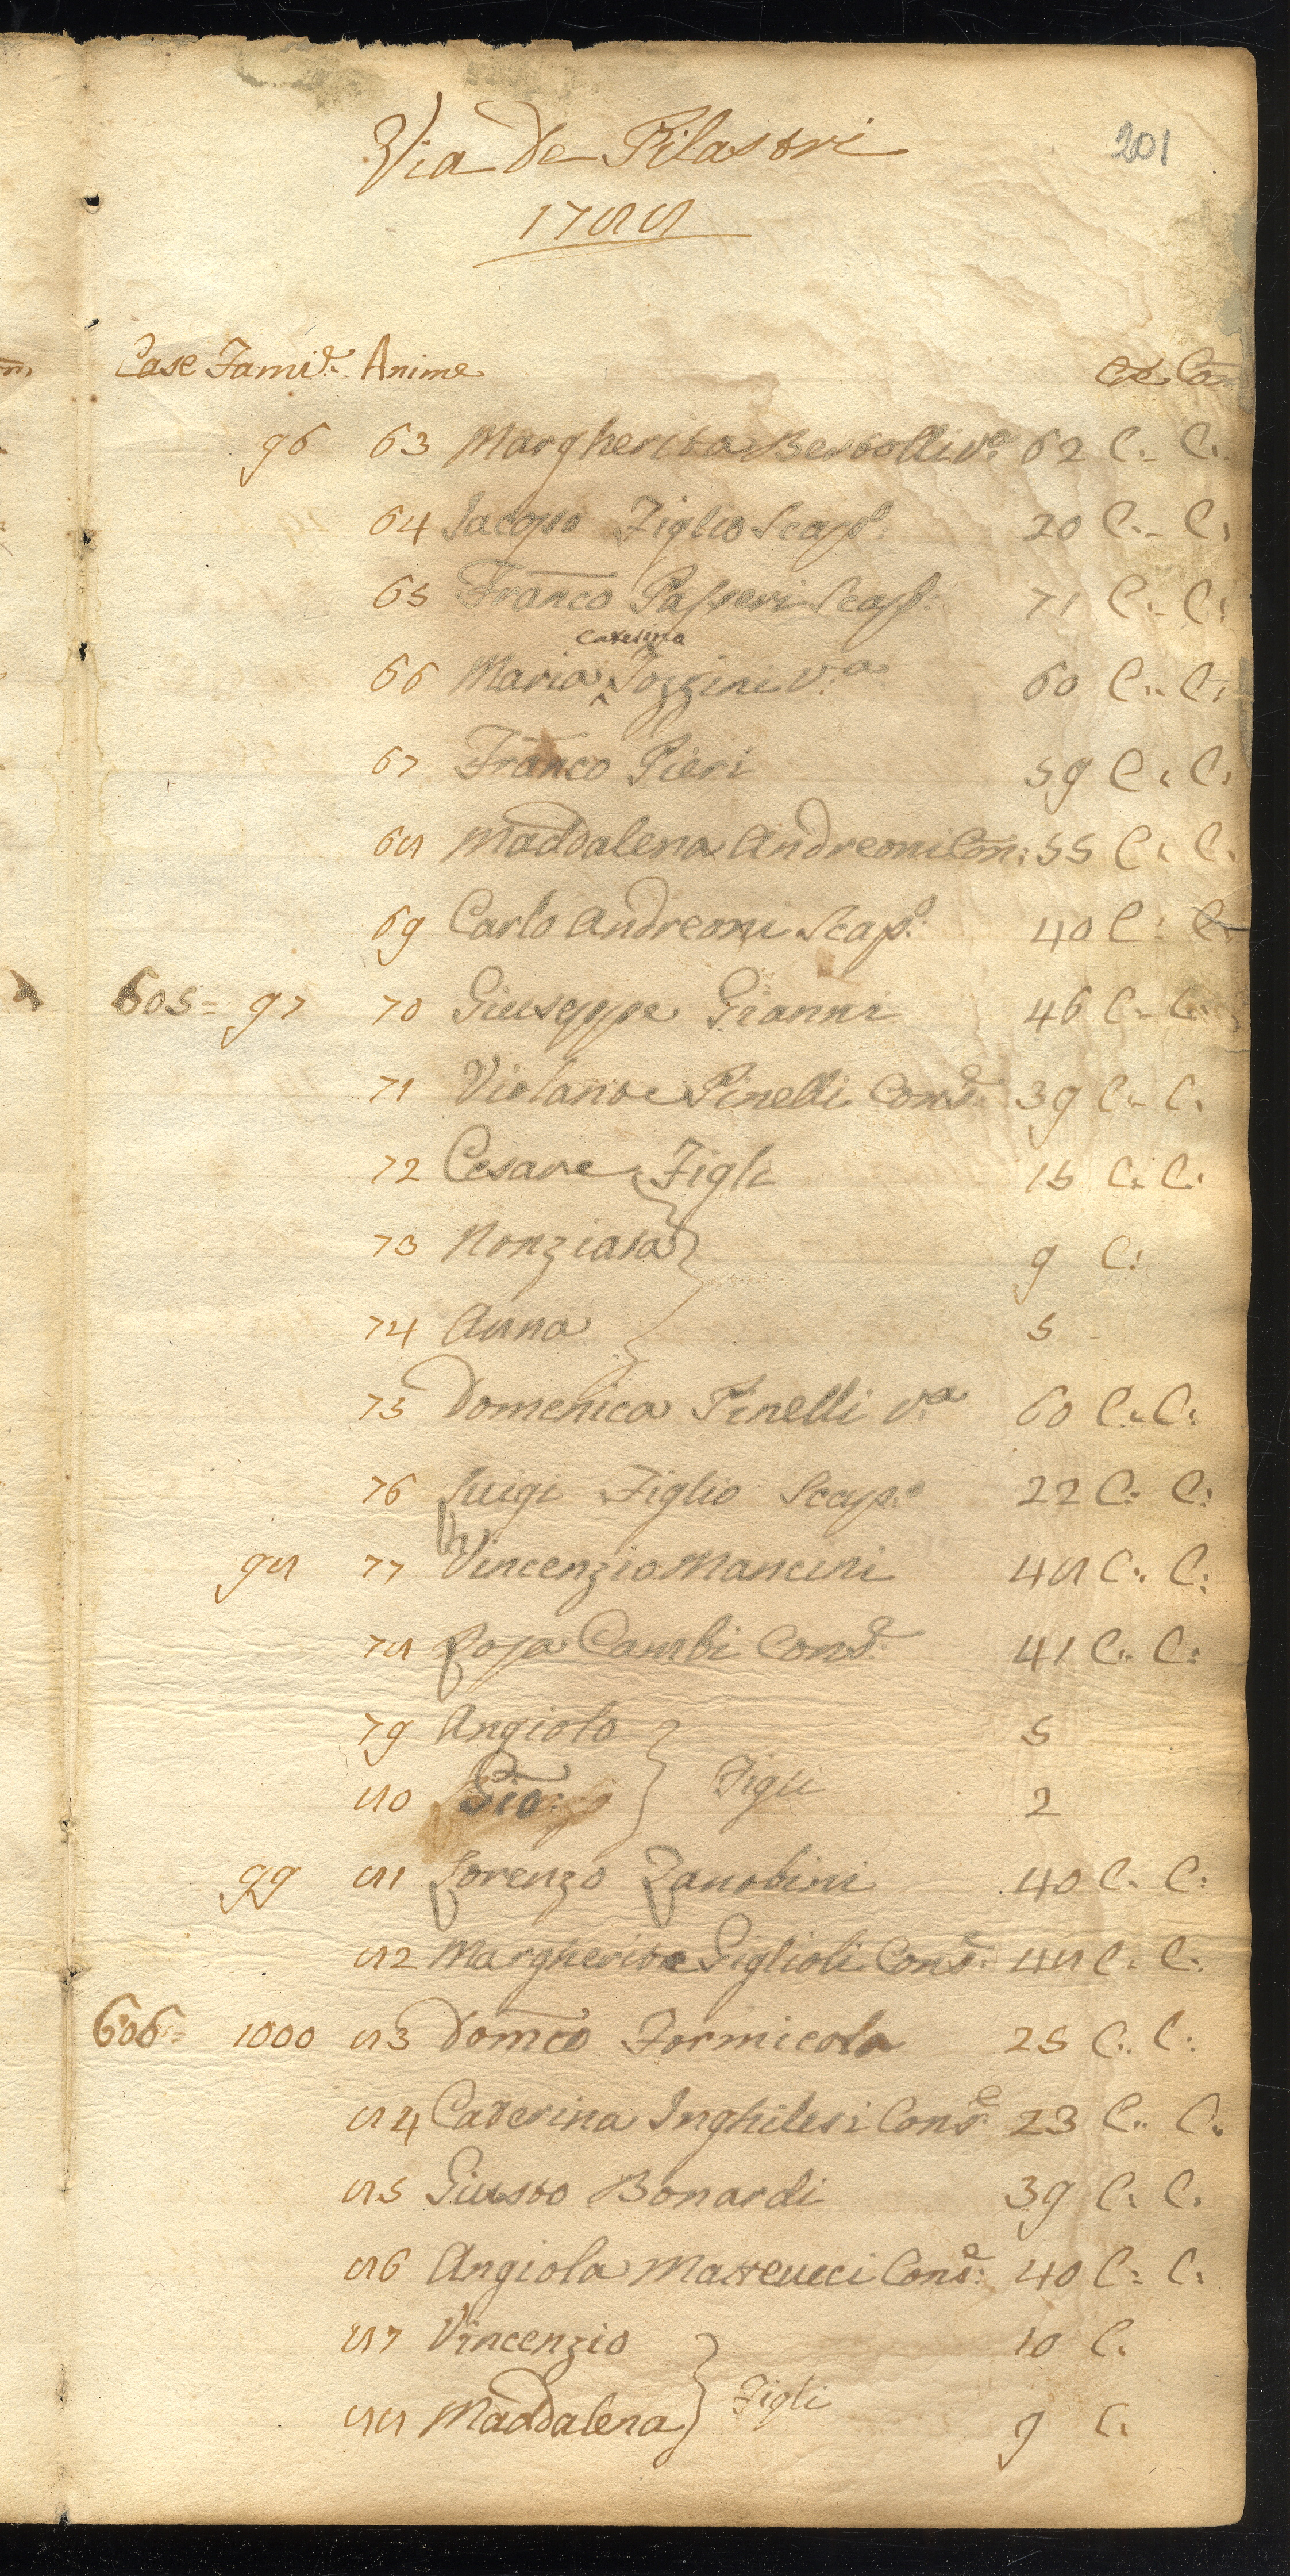 Via de Pilastri
201
1788
Case Famie. Anime
Cre. Com
96 63 Margherita Bertolli va. 62 C. C.
64 Jacopo Figlio Scapo. 20 C. C.
65 Franco Passeri Scapo. 71 C. C.
Caterina
66 Maria Pozzini V.a 60 C. C.
67 Franco Pieri 59 C. C.
68 Maddalena Andreoni Con: 55 C. C.
69 Carlo Andreoni Scapo. 40 C. C.
605= 97 70 Giuseppe Gianni 46 C. C.
71 Violante Pinelli Conse. 39 C. C.
72 Cesare Figli 15 C. C.
73 Nonziata 9 C:
74 Anna 5
75 Domenica Pinelli v.a 60 C. C:
76 Luigi Figlio Scap.o 22 C: C:
98 77 Vincenzio Mancini 48 C. C:
78 Rosa Cambi Conse. 41 C. C:
79 Angiolo 5
80 Gio: Figli 2
99 81 Lorenzo Zanobini 40 C. C:
82 Margherita Giglioli Conse. 48 C. C.
606= 1000 83 Domco Formicola 25 C. C:
84 Caterina Inghilesi Conse 23 C. C.
85 Giusto Bonardi 39 C. C.
86 Angiola Matteucci Conse. 40 C: C.
87 Vincenzio 10 C.
88 Maddalena Figli 9 C.